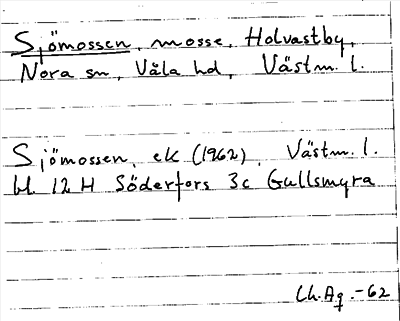 Sjömossen, mosse, Holvastby,
Nora sn, Våla hd, Västm. l.
Sjömossen, ek (1962), Västm. l.
bl. 12 H Söderfors 3c Gullsmyra
Ch. Ag. -62